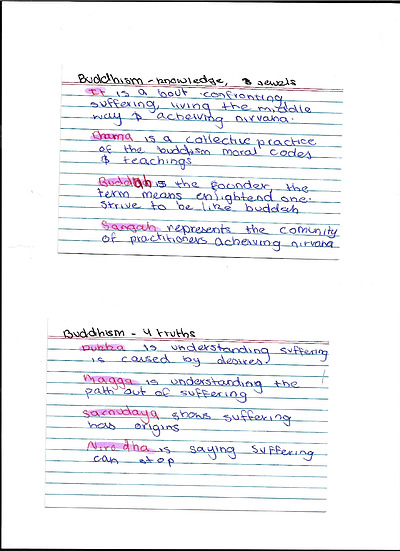 Buddhism - knowledge, 3 jewels
It is a bout confronting
suffering, living the middle
way & acheiving nirvana.
Drama is a collective practice
of the buddism moral codes
& teachings
Buddah is the founder, the
term means enlightend one.
Strive to be like buddah
Sangah represents the comunity
of practitioners acheiving nirvana
Buddhism - 4 truths
Dukka is understanding suffering
is caused by desires.
Magga is understanding the
path out of suffering
Samudaya shows suffering
has origins
Nirodha is saying suffering
can stop